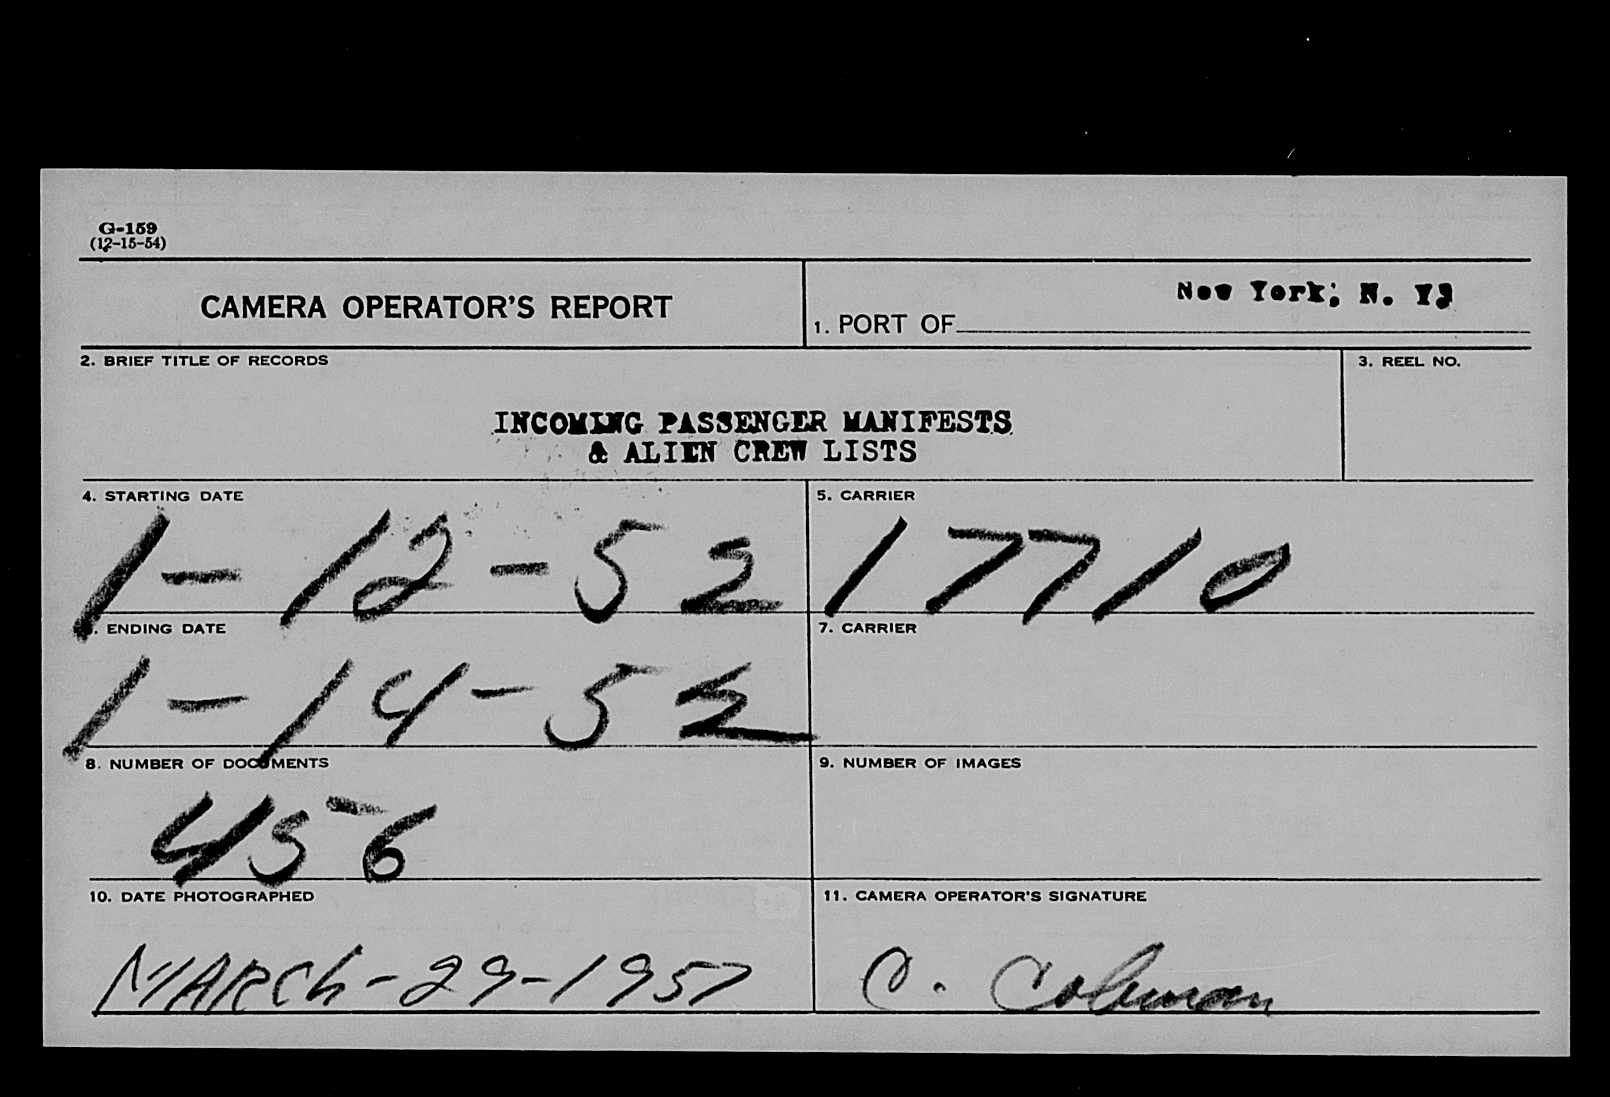 G-159
(12-15-54)
CAMERA OPERATOR'S REPORT
New York, N. Y.
1. PORT OF
2. BRIEF TITLE OF RECORDS
3. REEL NO.
INCOMING PASSENGER MANIFESTS
& ALIEN CREW LISTS
4. STARTING DATE
5. CARRIER
1-12-52
17710
ENDING DATE
7. CARRIER
1-14-52
8. NUMBER OF DOCUMENTS
9. NUMBER OF IMAGES
456
10. DATE PHOTOGRAPHED
11. CAMERA OPERATOR'S SIGNATURE
MARCh-29-1957
C. Coleman